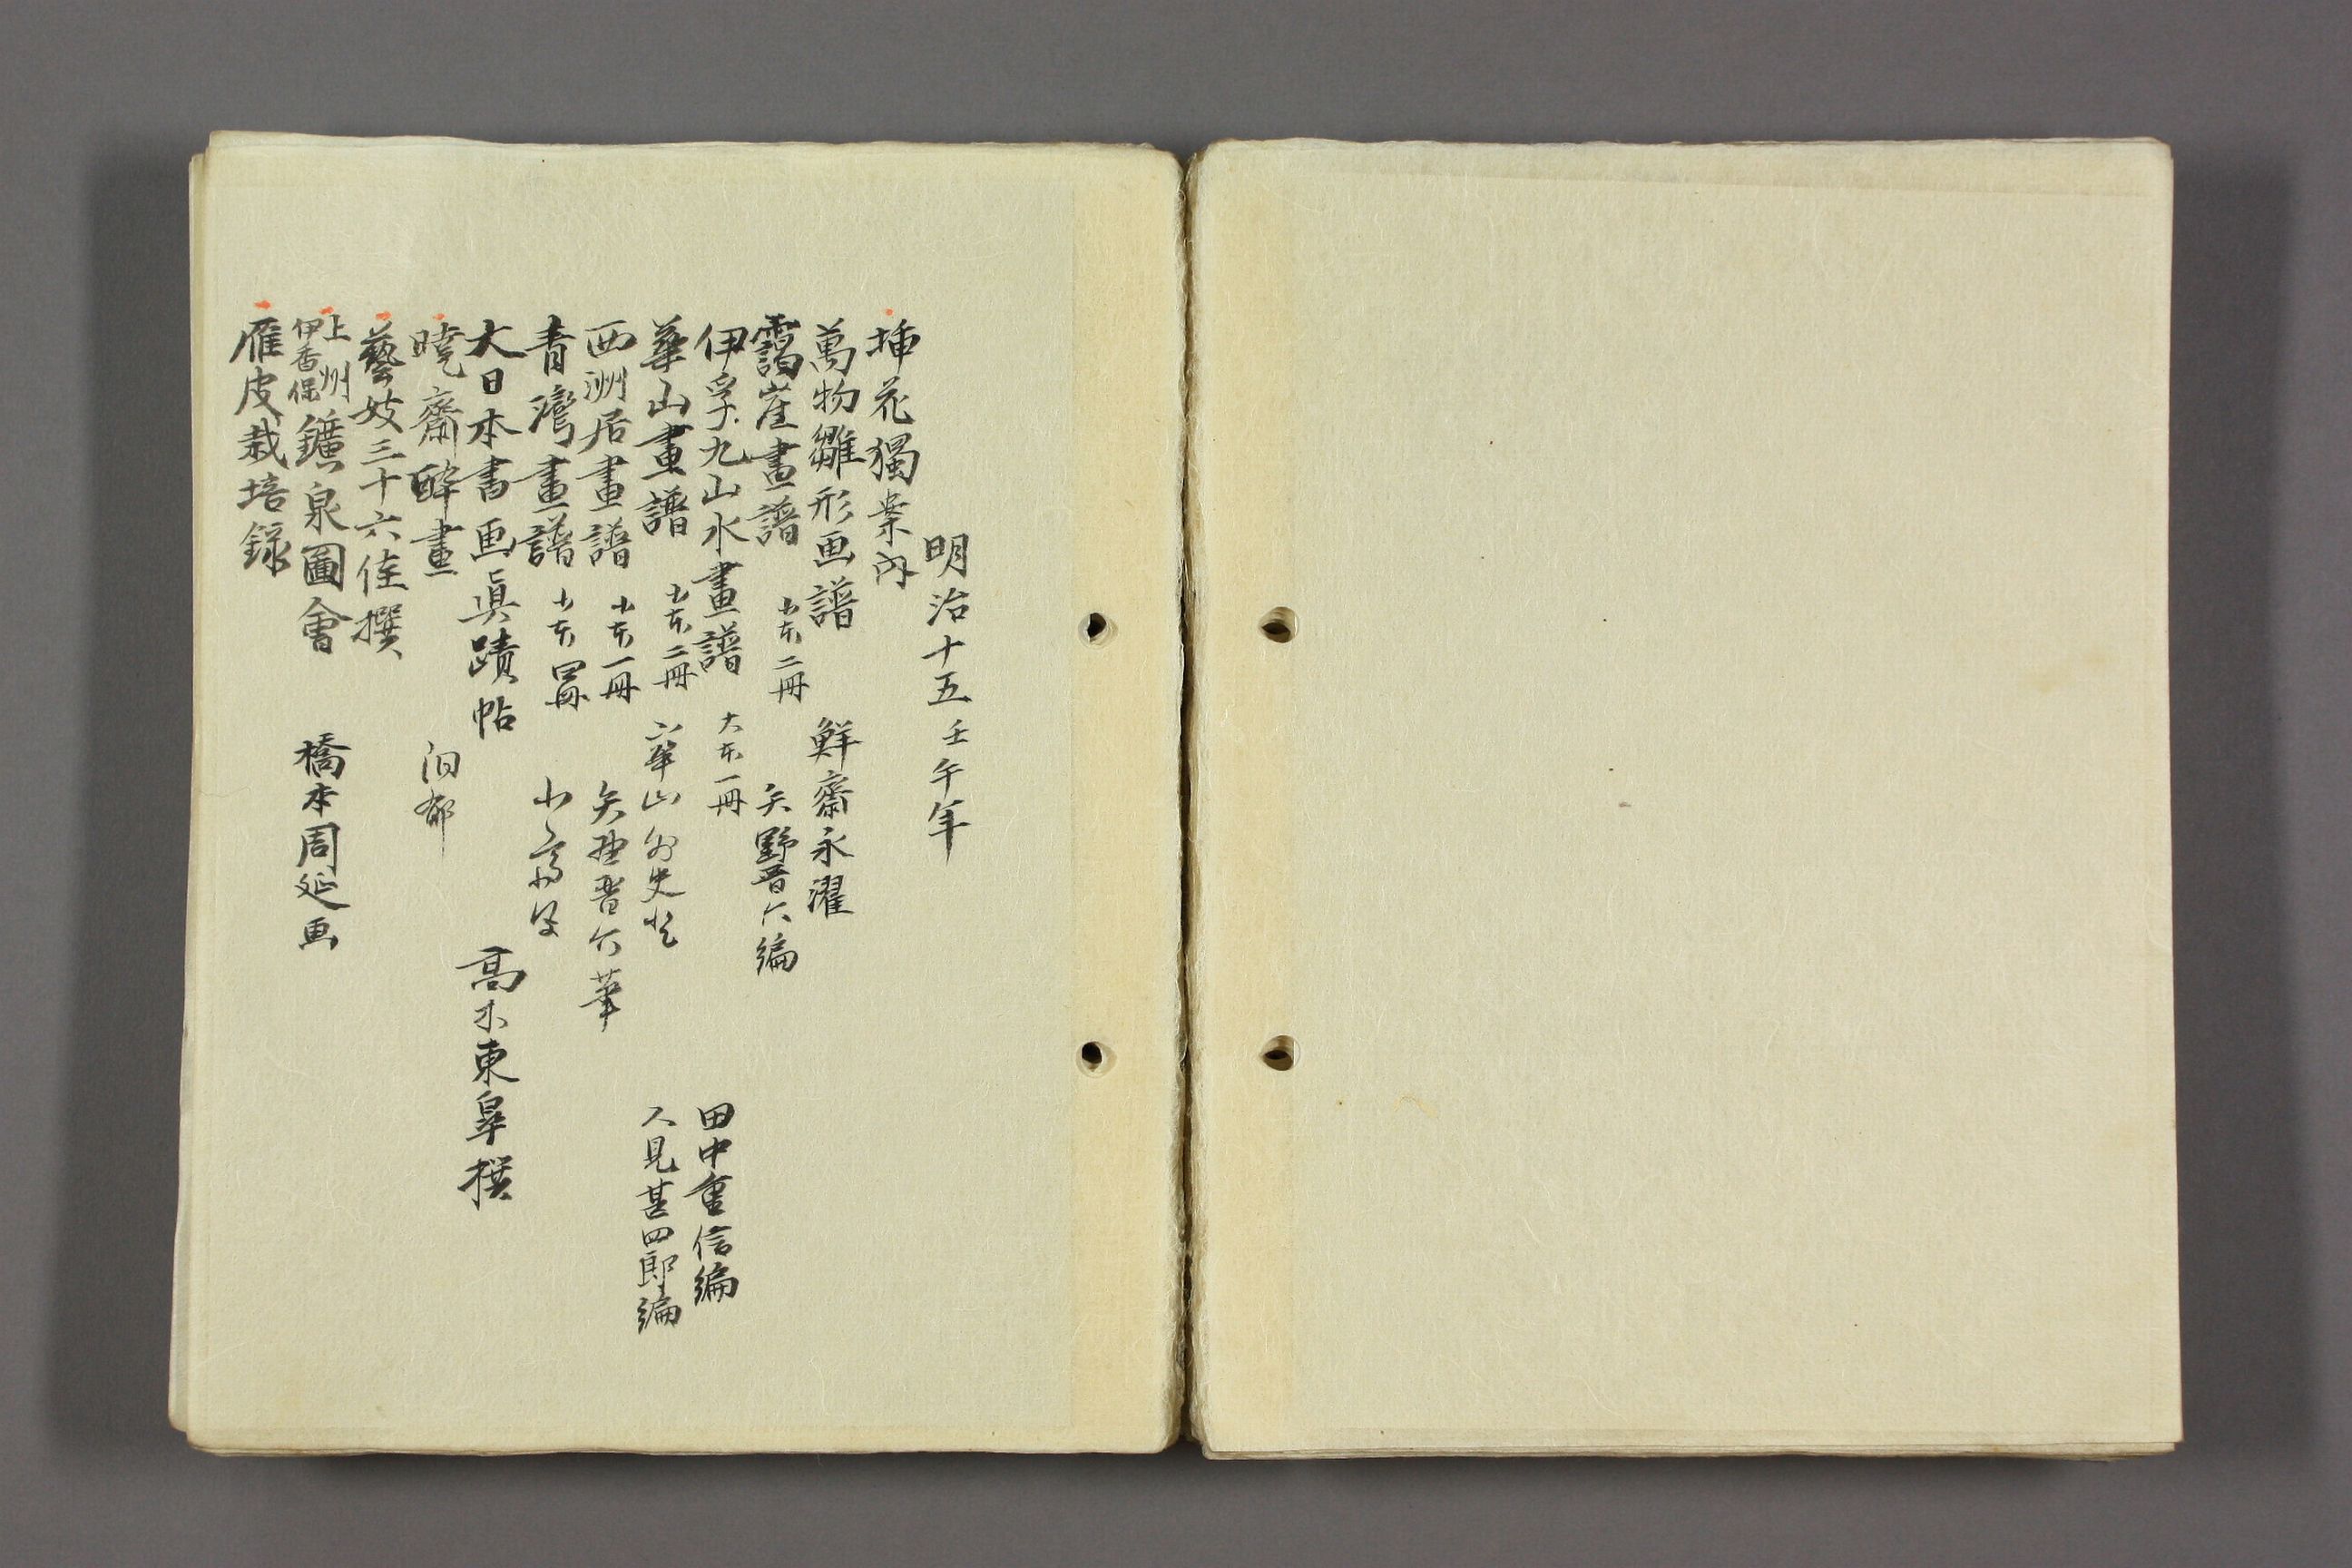 明治十五壬午年
挿花獨案内
萬物雛形画譜 鮮齋永濯
靄崖畫譜 小本二冊 矢野晋六編
伊孚九山水畫譜 大本一冊 田中重信編
華山畫譜 小本二冊 華山外史 人見甚四郎編
西洲居畫譜 小本一冊 矢野晋六 華
青灣畫譜 小本四冊 小齋
大日本書画眞蹟帖 高木東皐撰
暁齋酔畫
藝妓三十六佳撰
上州伊香保鑛泉圖會 橋本周延画
雁皮栽培録